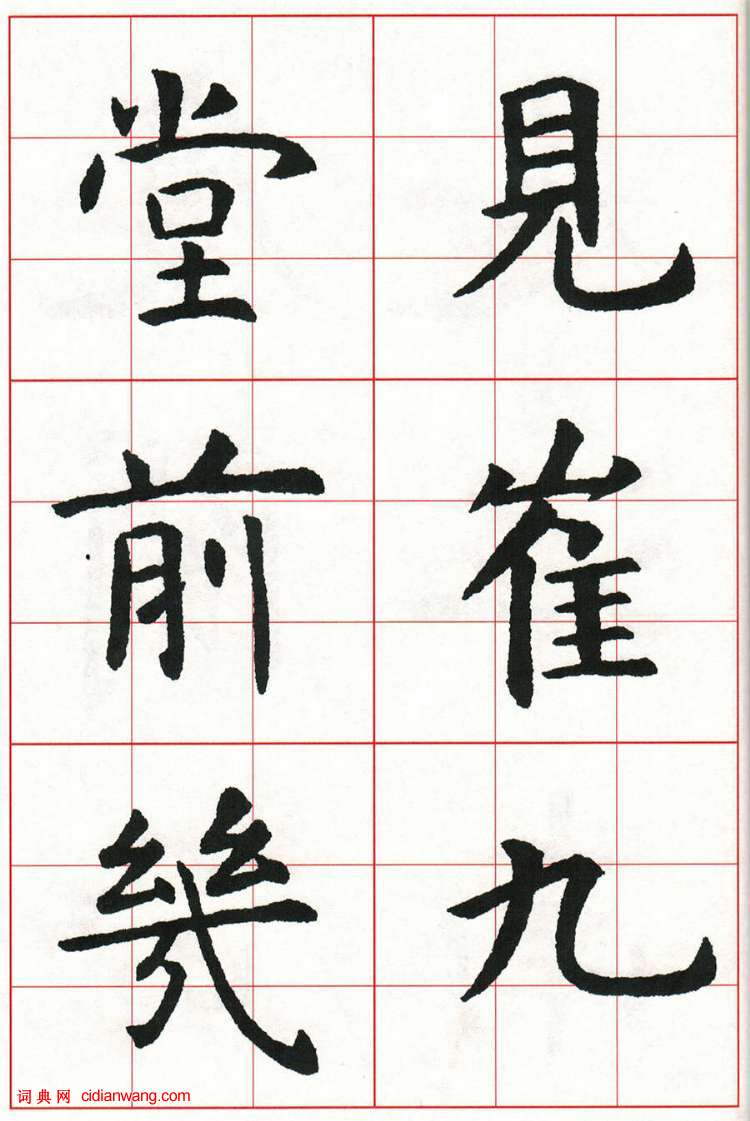 見崔九
堂前幾
词典网 cidianwang.com